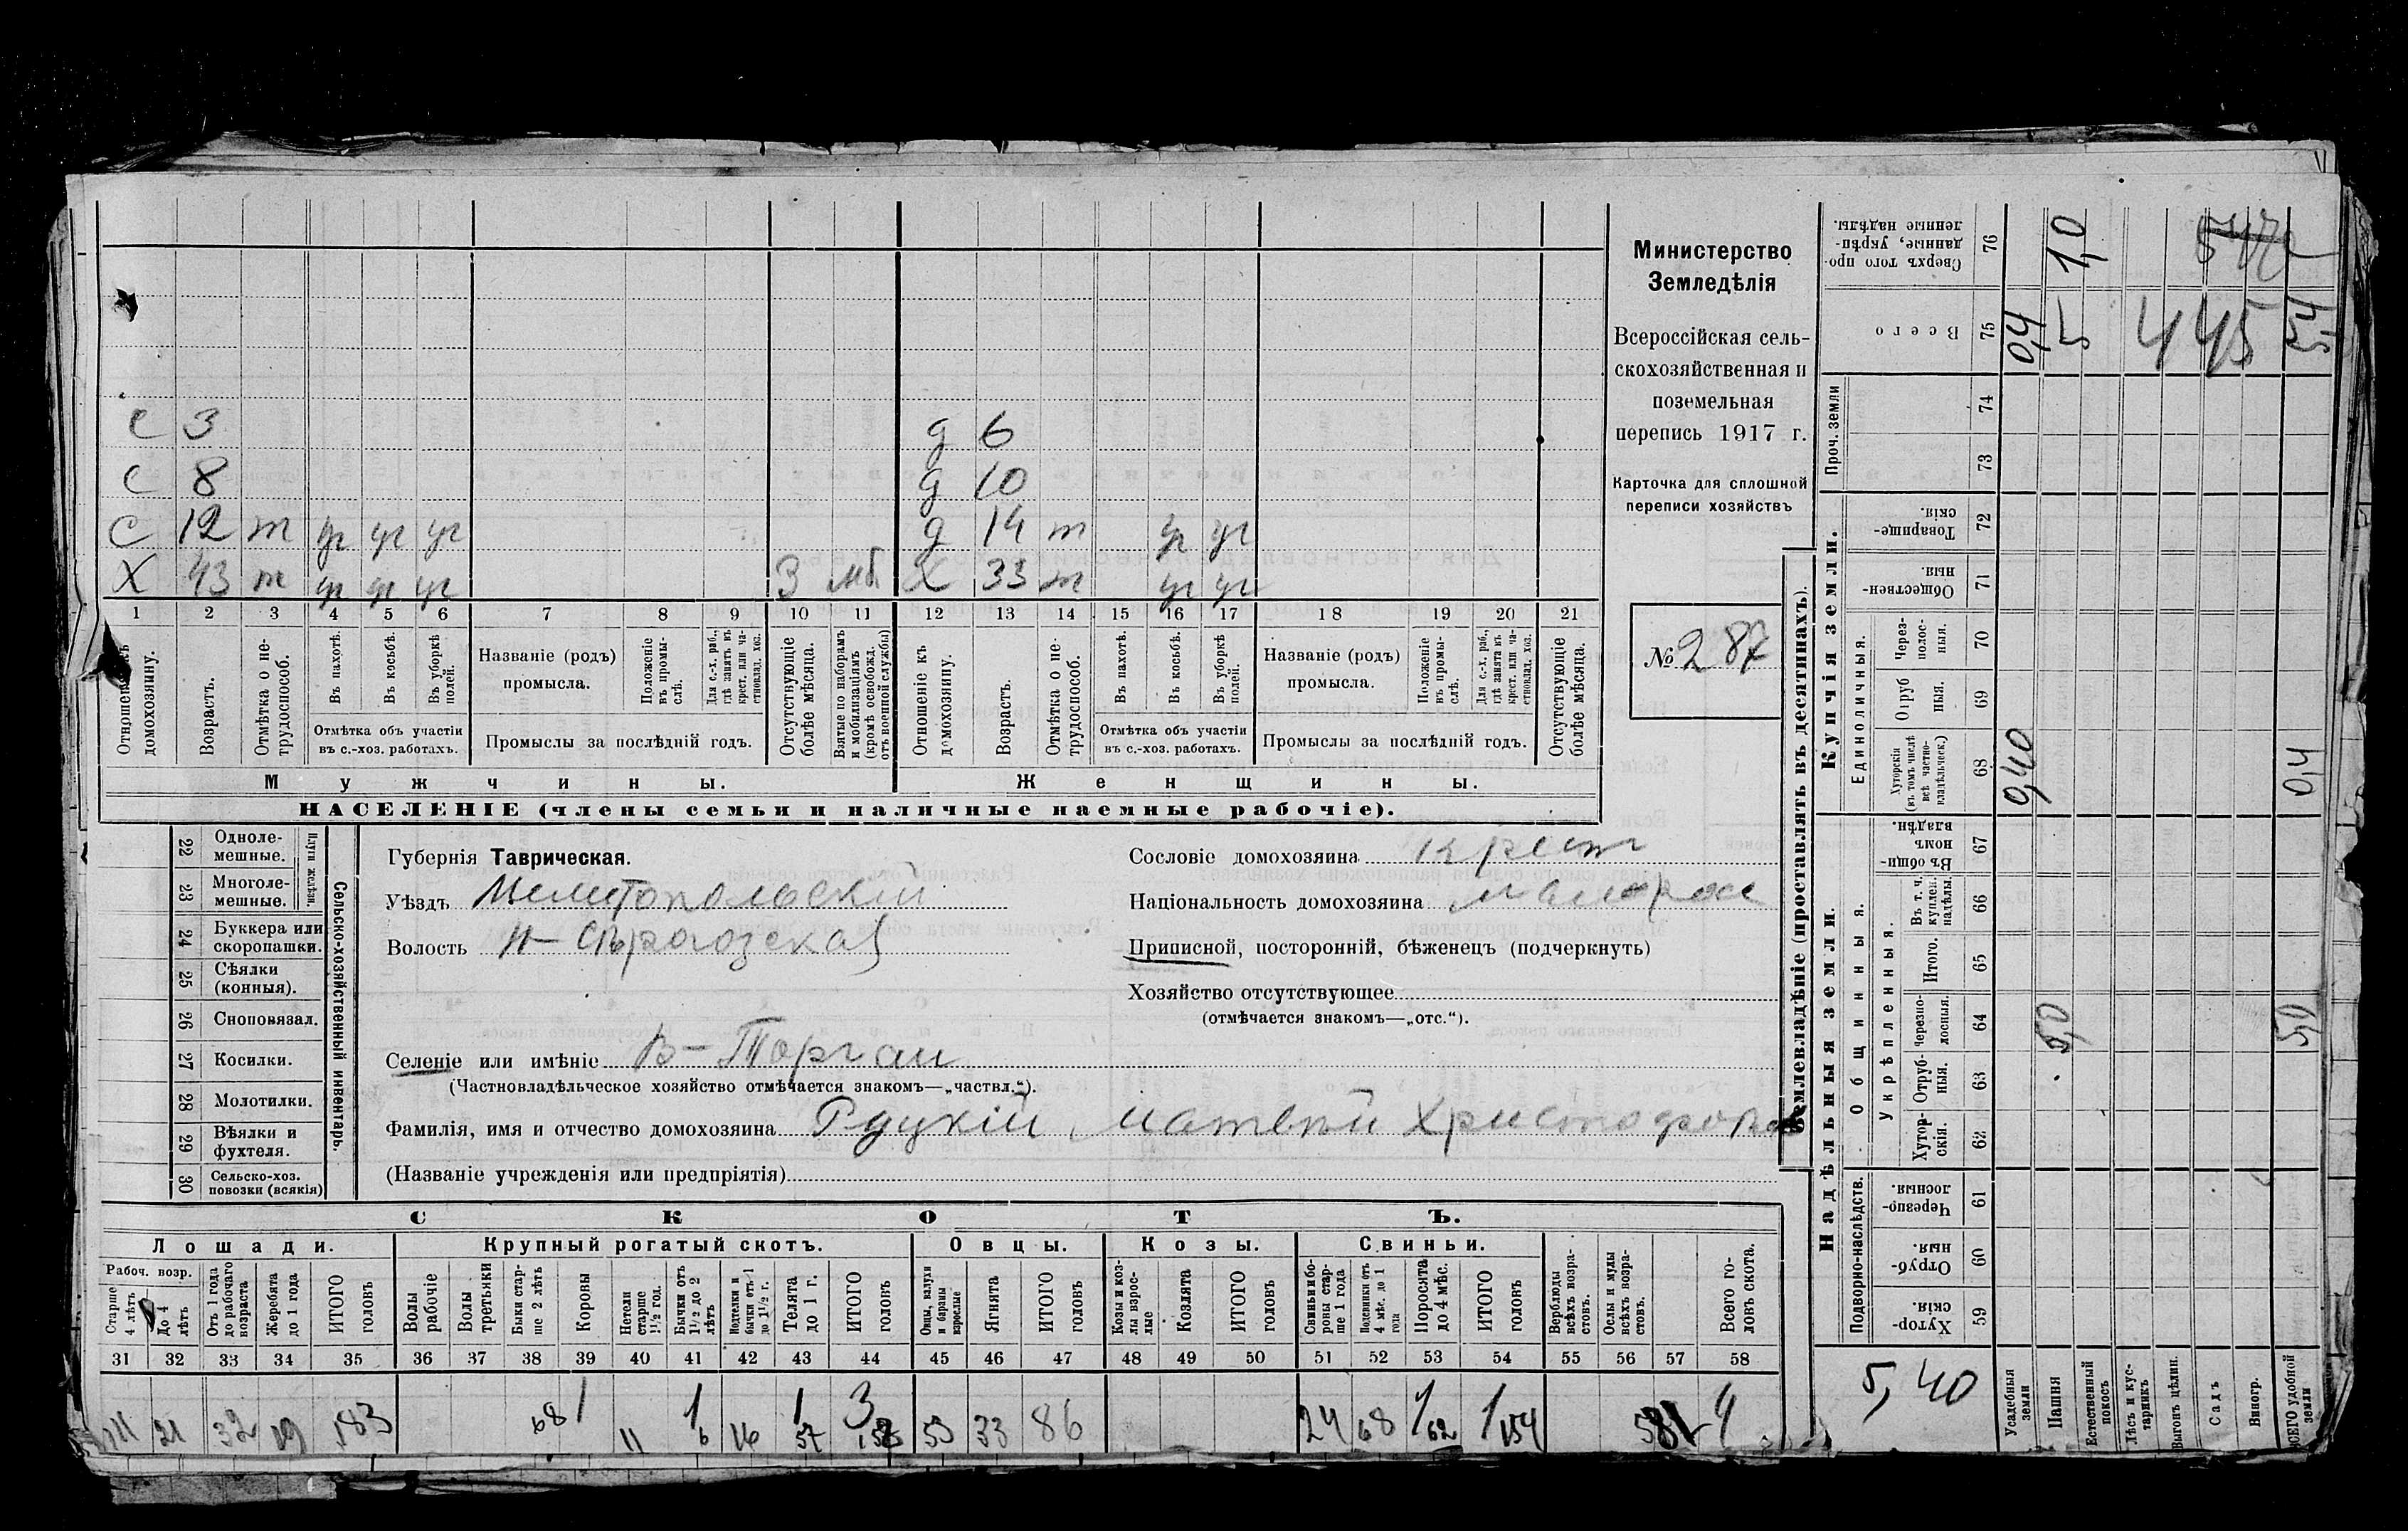 С 3 д 6
С 8 д 10
С 12 т уг уг уг д 14 т уг уг
Х 43 т уг уг уг 3 мб Х 33 т уг уг
1 2 3 4 5 6 7 8 9 10 11 12 13 14 15 16 17 18 19 20 21
Отношеніе къ домохозяину.
Возрастъ.
Отмѣтка о нетрудоспособ.
Въ пахотѣ.
Въ косьбѣ.
Въ уборкѣ полей.
Отмѣтка объ участіи
въ с.-хоз. работахъ.
Названіе (родъ)
промысла.
Положеніе въ промыслѣ.
Для с.-х. раб., гдѣ занятъ въ крест. или частновлад. хоз.
Промыслы за послѣдній годъ.
Отсутствующіе болѣе мѣсяца.
Взятые по наборамъ и мобилизаціямъ (кромѣ освобожд. отъ военной службы)
Отношеніе къ домохозяину.
Возрастъ.
Отмѣтка о не- трудоспособ.
Въ пахотѣ.
Въ косьбѣ.
Въ уборкѣ полей.
Отмѣтка объ участіи
въ с.-хоз. работахъ.
Названіе (родъ)
промысла.
Положеніе въ промыслѣ.
Для с.-х. раб., гдѣ занята въ крест. или частновлад. хоз.
Промыслы за послѣдній годъ.
Отсутствующіе болѣе мѣсяца.
Мужчины. Женщины.
НАСЕЛЕНІЕ (члены семьи и наличные наемные рабочіе).
Министерство
Земледѣлія
Всероссійская сель-
скохозяйственная и
поземельная
перепись 1917 г.
Карточка для сплошной
переписи хозяйствъ
№ 287
22 Одноле-
мешные.
23 Многоле-
мешные.
Плуги желѣзн.
24 Буккера или
скоропашки.
25 Сѣялки
(конныя).
26 Сноповязал.
27 Косилки.
28 Молотилки.
29 Вѣялки и
фухтеля.
30 Сельско-хоз.
повозки (всякія)
Сельско-хозяйственный инвентарь.
Губернія Таврическая.
Уѣздъ Мелитопольскій
Волость Н-Сѣрогозская
Селеніе или имѣніе В-Торгаи
(Частновладѣльческое хозяйство отмѣчается знакомъ—„частвл.“).
Фамилія, имя и отчество домохозяина Рудукій Матвѣй Христофоров
(Названіе учрежденія или предпріятія)
Сословіе домохозяина крест
Національность домохозяина малорос
Приписной, посторонній, бѣженецъ (подчеркнуть)
Хозяйство отсутствующее
(отмѣчается знакомъ—„отс.“).
СКОТЪ.
Лошади. Крупный рогатый скотъ. Овцы. Козы. Свиньи.
Рабоч. возр.
Старше 4 лѣтъ
До 4 лѣтъ
Отъ 1 года до рабочаго возраста
Жеребята до 1 года
ИТОГО головъ
Волы рабочіе
Волы третьяки
Быки старше 2 лѣтъ
Коровы
Нетели старше 1½ год.
Бычки отъ 1½ до 2 лѣтъ
Нетелки и бычки отъ 1 до 1½ г.
Телята до 1 г.
ИТОГО головъ
Овцы, валухи и бараны взрослые
Ягнята
ИТОГО головъ
Козы и козлы взрослые
Козлята
ИТОГО головъ
Свиньи и бороны старше 1 года
Подсвинки отъ 4 мѣс. до 1 года
Поросята до 4 мѣс.
ИТОГО головъ
Верблюды всѣхъ возрастовъ.
Ослы и мулы всѣхъ возрастовъ.
Всего головъ скота.
31 32 33 34 35 36 37 38 39 40 41 42 43 44 45 46 47 48 49 50 51 52 53 54 55 56 57 58
1 1 1 3 1 1 4
21 32 19 183 68 11 6 16 37 53 33 86 24 68 62 154
Землевладѣніе (проставлять въ десятинахъ).
Надѣльныя земли. Купчія земли.
Подворно-наслѣдств.
Общинныя.
Укрѣпленныя.
Единоличныя.
Проч. земли
Хуторскія 59
Отрубныя. 60
Черезполосныя. 61
Хуторскія. 62
Отрубныя. 63
Черезполосныя. 64
Итого. 65
Въ т. ч. куплен. надѣлы. 66
Въ общинномъ владѣн. 67
Хуторскія (въ томъ числѣ всѣ частновладѣльческ.) 68
Отрубныя. 69
Черезполосныя. 70
Общественныя 71
Товарищескія. 72
73
74
Всего 75
Сверхъ того проданные, укрѣпленные надѣлы. 76
Усадебныя земли 0,40 0,4
Пашня 5,0 5 1,0
Естественный покосъ
Лѣсъ и кустарникъ
Выгонъ цѣлин.
Садъ
Виногр.
ВСЕГО удобной земли 5,0 0,4 5,4
445
5,40